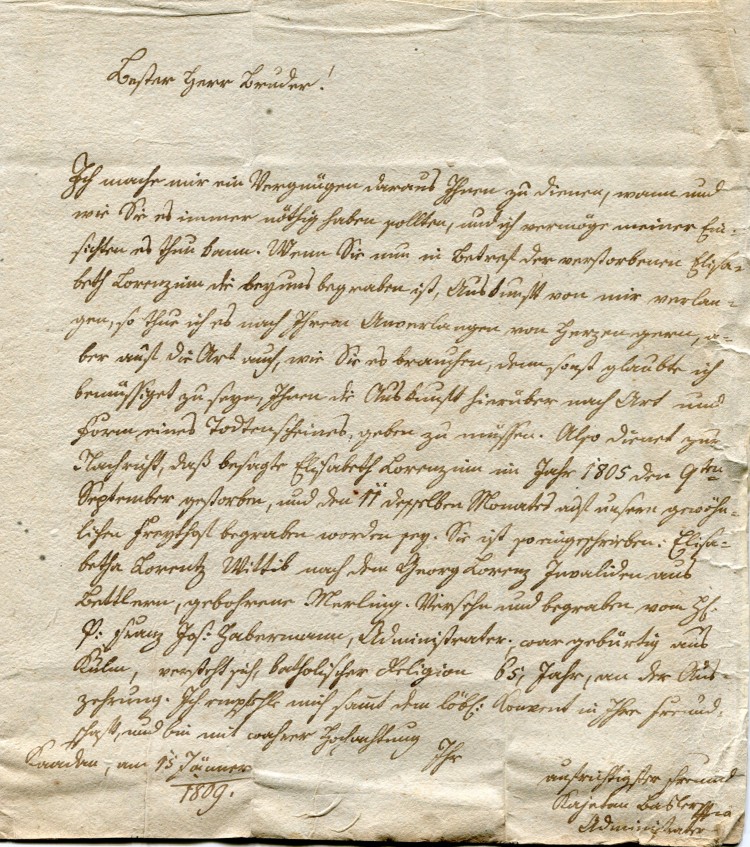 Bester Herr Bruder!
Ich mache mir ein Vergnügen daraus Ihnen zu dienen, wann und
wie Sie es immer nöthig haben sollten, und ich vermöge meiner Ein-
sichten es thun kann. Wenn Sie nun in Betref der verstorbenen Elisa-
beth Lorenzinn die bey uns begraben ist, Auskunft von mir verlan-
gen, so thue ich es nach Ihrem Anverlangen von Herzen gern, a-
ber auf die Art auch, wie Sie es brauchen, denn sonst glaubte ich
bemüssiget zu seyn, Ihnen die Auskunft hierüber nach Art und
Form eines Todtenscheines, geben zu müssen. Also dienet zur
Nachricht, daß besagte Elisabeth Lorenzinn im Jahr 1805 den 9ten
September gestorben, und den 11 desselben Monates auf unsern gewöhn-
lichen Freythof begraben worden sey. Sie ist so eingeschrieben: Elisa-
betha Lorentz Wittib nach dem Georg Lorenz Invaliden aus
Bettlern, gebohrene Merling. Versehn und begraben vom H:
P: Franz Jos: Habermann, Administrater. war gebürtig aus
Kulm, versteht sich, katholischer Religion 65, Jahr, an der Aus-
zehrung. Ich empfehle mich sammt dem löbl: Konvent in Ihre Freund-
schaft, und bin mit wahrer Hochachtung
Ihr
Kaadan, am 15 Jänner
1809.
aufrichtigster Freund
Kajetan Basler
Administrater